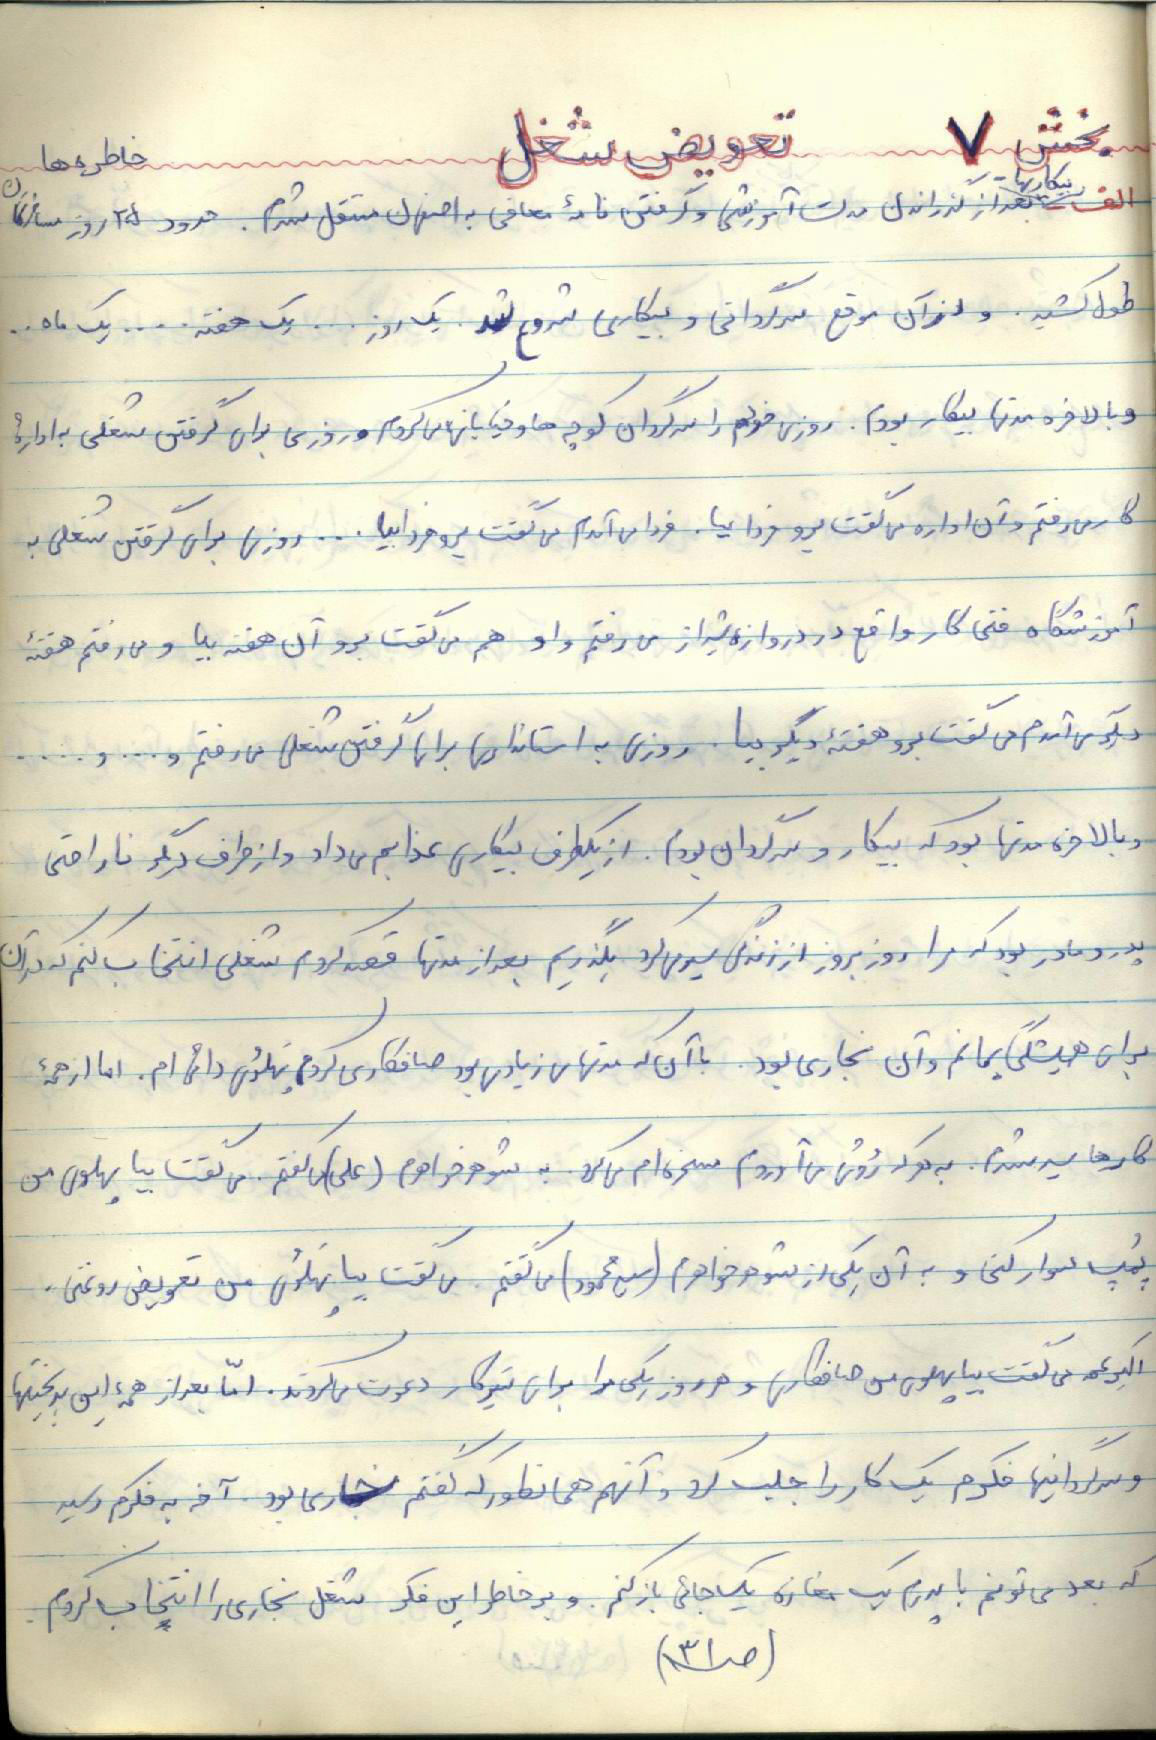 بخش ۷ تعویض شغل خاطره‌ها
بیکاریها
الف - بعد از گذراندن مدت آموزشی و گرفتن نامهٔ معافی به اصفهان منتقل شدم. حدود ۲۵ روز مسافرتمان
طول کشید. و از آن موقع سرگردانی و بیکاری شروع شد. یک روز .... یک هفته .... یک ماه ..
و بالاخره مدتها بیکار بودم. روزی خودم را سرگردان کوچه‌ها و خیابانها می‌کردم و روزی برای گرفتن شغلی به ادارهٔ
کار می‌رفتم و آن اداره می‌گفت برو فردا بیا. فردا می‌آمدم می‌گفت برو فردا بیا ... روزی برای گرفتن شغلی به
آموزشگاه فنی کار واقع در دروازه شیراز می‌رفتم و او هم می‌گفت برو آن هفته بیا و می‌رفتم هفتهٔ
دیگر می‌آمدم می‌گفت برو هفتهٔ دیگر بیا. روزی به استانداری برای گرفتن شغلی می‌رفتم و .... و .....
و بالاخره مدتها بود که بیکار و سرگردان بودم. از یکطرف بیکاری عذابم می‌داد و از طرف دیگر ناراحتی
پدر و مادر بود که مرا روز بروز از زندگی سیر می‌کرد بگذریم بعد از مدتها قصد کردم شغلی انتخاب کنم که در آن
برای همیشگی بمانم و آن نجاری بود. با آن که مدتهای زیادی بود صافکاری کردم پهلوی دائی ام. اما از همهٔ
کارها سیر شدم. به هر که رُوش می‌آوردم مسخره ام می‌کرد. به شوهر خواهرم (علی) می‌گفتم. می‌گفت بیا پهلوی من
پُمپ سوار کنی و به آن یکی از شوهر خواهرم (سید محمود) می‌گفتم. می‌گفت بیا پهلوی من تعویض روغنی.
اکبر عمه می‌گفت بیا پهلوی من صافکاری و هر روز یکی مرا برای یک کار دعوت می‌کردند. امّا بعد از همهٔ این بدبختیها
و سرگردانیها فکرم یک کار را جلب کرد و آنهم همانطور که گفتم نجاری بود. آخه به فکرم رسید
که بعد می‌تونم با پدرم یک مغازه یکجائی باز کنم. و بر خاطر این فکر شغل نجاری را انتخاب کردم.
(صـ ۱۳۱)